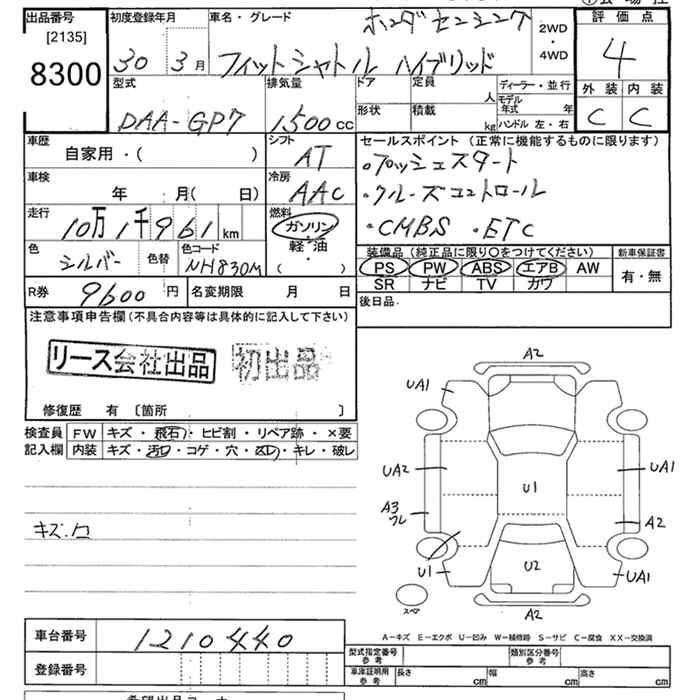 出品番号
[2135]
8300
初度登録年月
30 3月
車名・グレード
ホンダセンシング
フィットシャトル ハイブリッド
2WD
・
4WD
評価点
4
外装 内装
C C
型式
DAA-GP7
排気量
1500cc
ドア
形状
定員
人
積載
kg
ディーラー・並行
モデル年式 年
ハンドル 左・右
車歴
自家用・( )
シフト
AT
車検
年 月( 日)
冷房
AAC
走行
10万1千961km
燃料
ガソリン
軽油
( )
色
シルバー
色替
色コード
NH830M
R券
9600円
名変期限 月 日
セールスポイント (正常に機能するものに限ります)
・プッシュスタート
・クルーズコントロール
・CMBS ・ETC
装備品 (純正品に限り○をつけてください)
新車保証書
PS PW ABS エアB AW
SR ナビ TV カワ
有・無
後日品.
注意事項申告欄(不具合内容等は具体的に記入して下さい)
リース会社出品
初出品
修復歴 有 〔箇所 〕
検査員
記入欄
FW キズ・飛石・ヒビ割・リペア跡・×要
内装 キズ・汚れ・コゲ・穴・・キレ・破レ
キズ.凹
A2
UA1
UA2
UA1
U1
A3
ワレ
A2
U1
U2
UA1
スペア
A2
A-キズ E-エクボ U-凹み W-補修跡 S-サビ C-腐食 XX-交換済
車台番号
1210440
登録番号
型式指定番号
参考
類別区分番号
参考
車庫証明用
参考
長さ cm
幅 cm
高さ cm